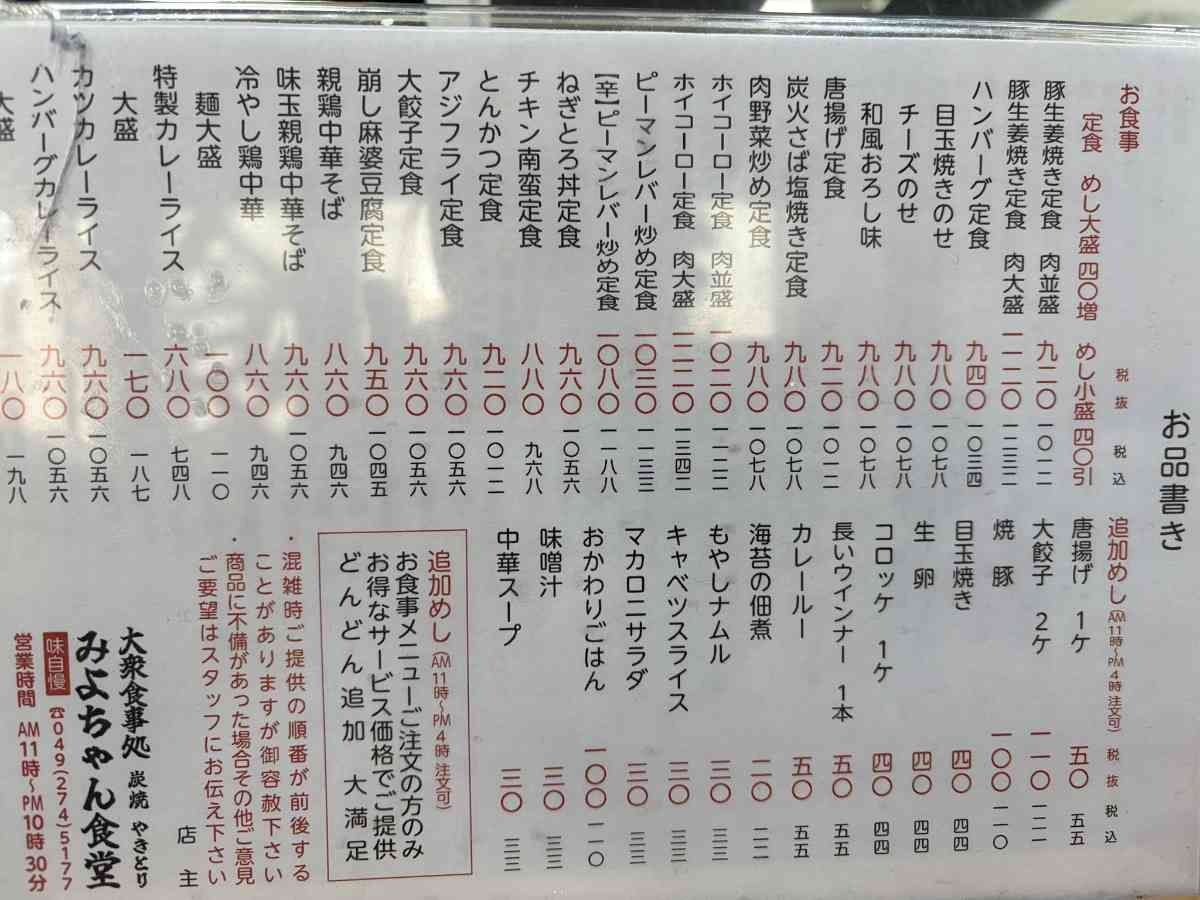 お品書き
お食事 税抜 税込
定食 めし大盛 四〇増 めし小盛 四〇引
豚生姜焼き定食 肉並盛 九二〇 一〇一二
豚生姜焼き定食 肉大盛 一一二〇 一二三二
ハンバーグ定食 九四〇 一〇三四
目玉焼きのせ 九八〇 一〇七八
チーズのせ 九八〇 一〇七八
和風おろし味 九八〇 一〇七八
唐揚げ定食 九二〇 一〇一二
炭火さば塩焼き定食 九八〇 一〇七八
肉野菜炒め定食 九八〇 一〇七八
ホイコーロー定食 肉並盛 一〇二〇 一一二二
ホイコーロー定食 肉大盛 一二二〇 一三四二
ピーマンレバー炒め定食 一〇三〇 一一三三
【辛】ピーマンレバー炒め定食 一〇八〇 一一八八
ねぎとろ丼定食 九六〇 一〇五六
チキン南蛮定食 八八〇 九六八
とんかつ定食 九二〇 一〇一二
アジフライ定食 九六〇 一〇五六
大餃子定食 九六〇 一〇五六
崩し麻婆豆腐定食 九五〇 一〇四五
親鶏中華そば 八六〇 九四六
味玉親鶏中華そば 九六〇 一〇五六
冷やし鶏中華 八六〇 九四六
麺大盛 一〇〇 一一〇
特製カレーライス 六八〇 七四八
大盛 一七〇 一八七
カツカレーライス 九六〇 一〇五六
ハンバーグカレーライス 九六〇 一〇五六
大盛 一八〇 一九八
追加めし(AM11時〜PM4時注文可) 税抜 税込
唐揚げ 1ケ 五〇 五五
大餃子 2ケ 一一〇 一二一
焼豚 一〇〇 一一〇
目玉焼き 四〇 四四
生卵 四〇 四四
コロッケ 1ケ 四〇 四四
長いウインナー 1本 五〇 五五
カレールー 五〇 五五
海苔の佃煮 二〇 二二
もやしナムル 三〇 三三
キャベツスライス 三〇 三三
マカロニサラダ 三〇 三三
おかわりごはん 一〇〇 一一〇
味噌汁 三〇 三三
中華スープ 三〇 三三
追加めし(AM11時〜PM4時 注文可)
お食事メニューご注文の方のみ
お得なサービス価格でご提供
どんどん追加 大満足
・混雑時ご提供の順番が前後する
ことがありますが御容赦下さい
・商品に不備があった場合その他ご意見
ご要望はスタッフにお伝え下さい
店主
大衆食事処 炭焼 やきとり
みよちゃん食堂
味自慢 ☎049(274)5177
営業時間 AM11時〜PM10時30分